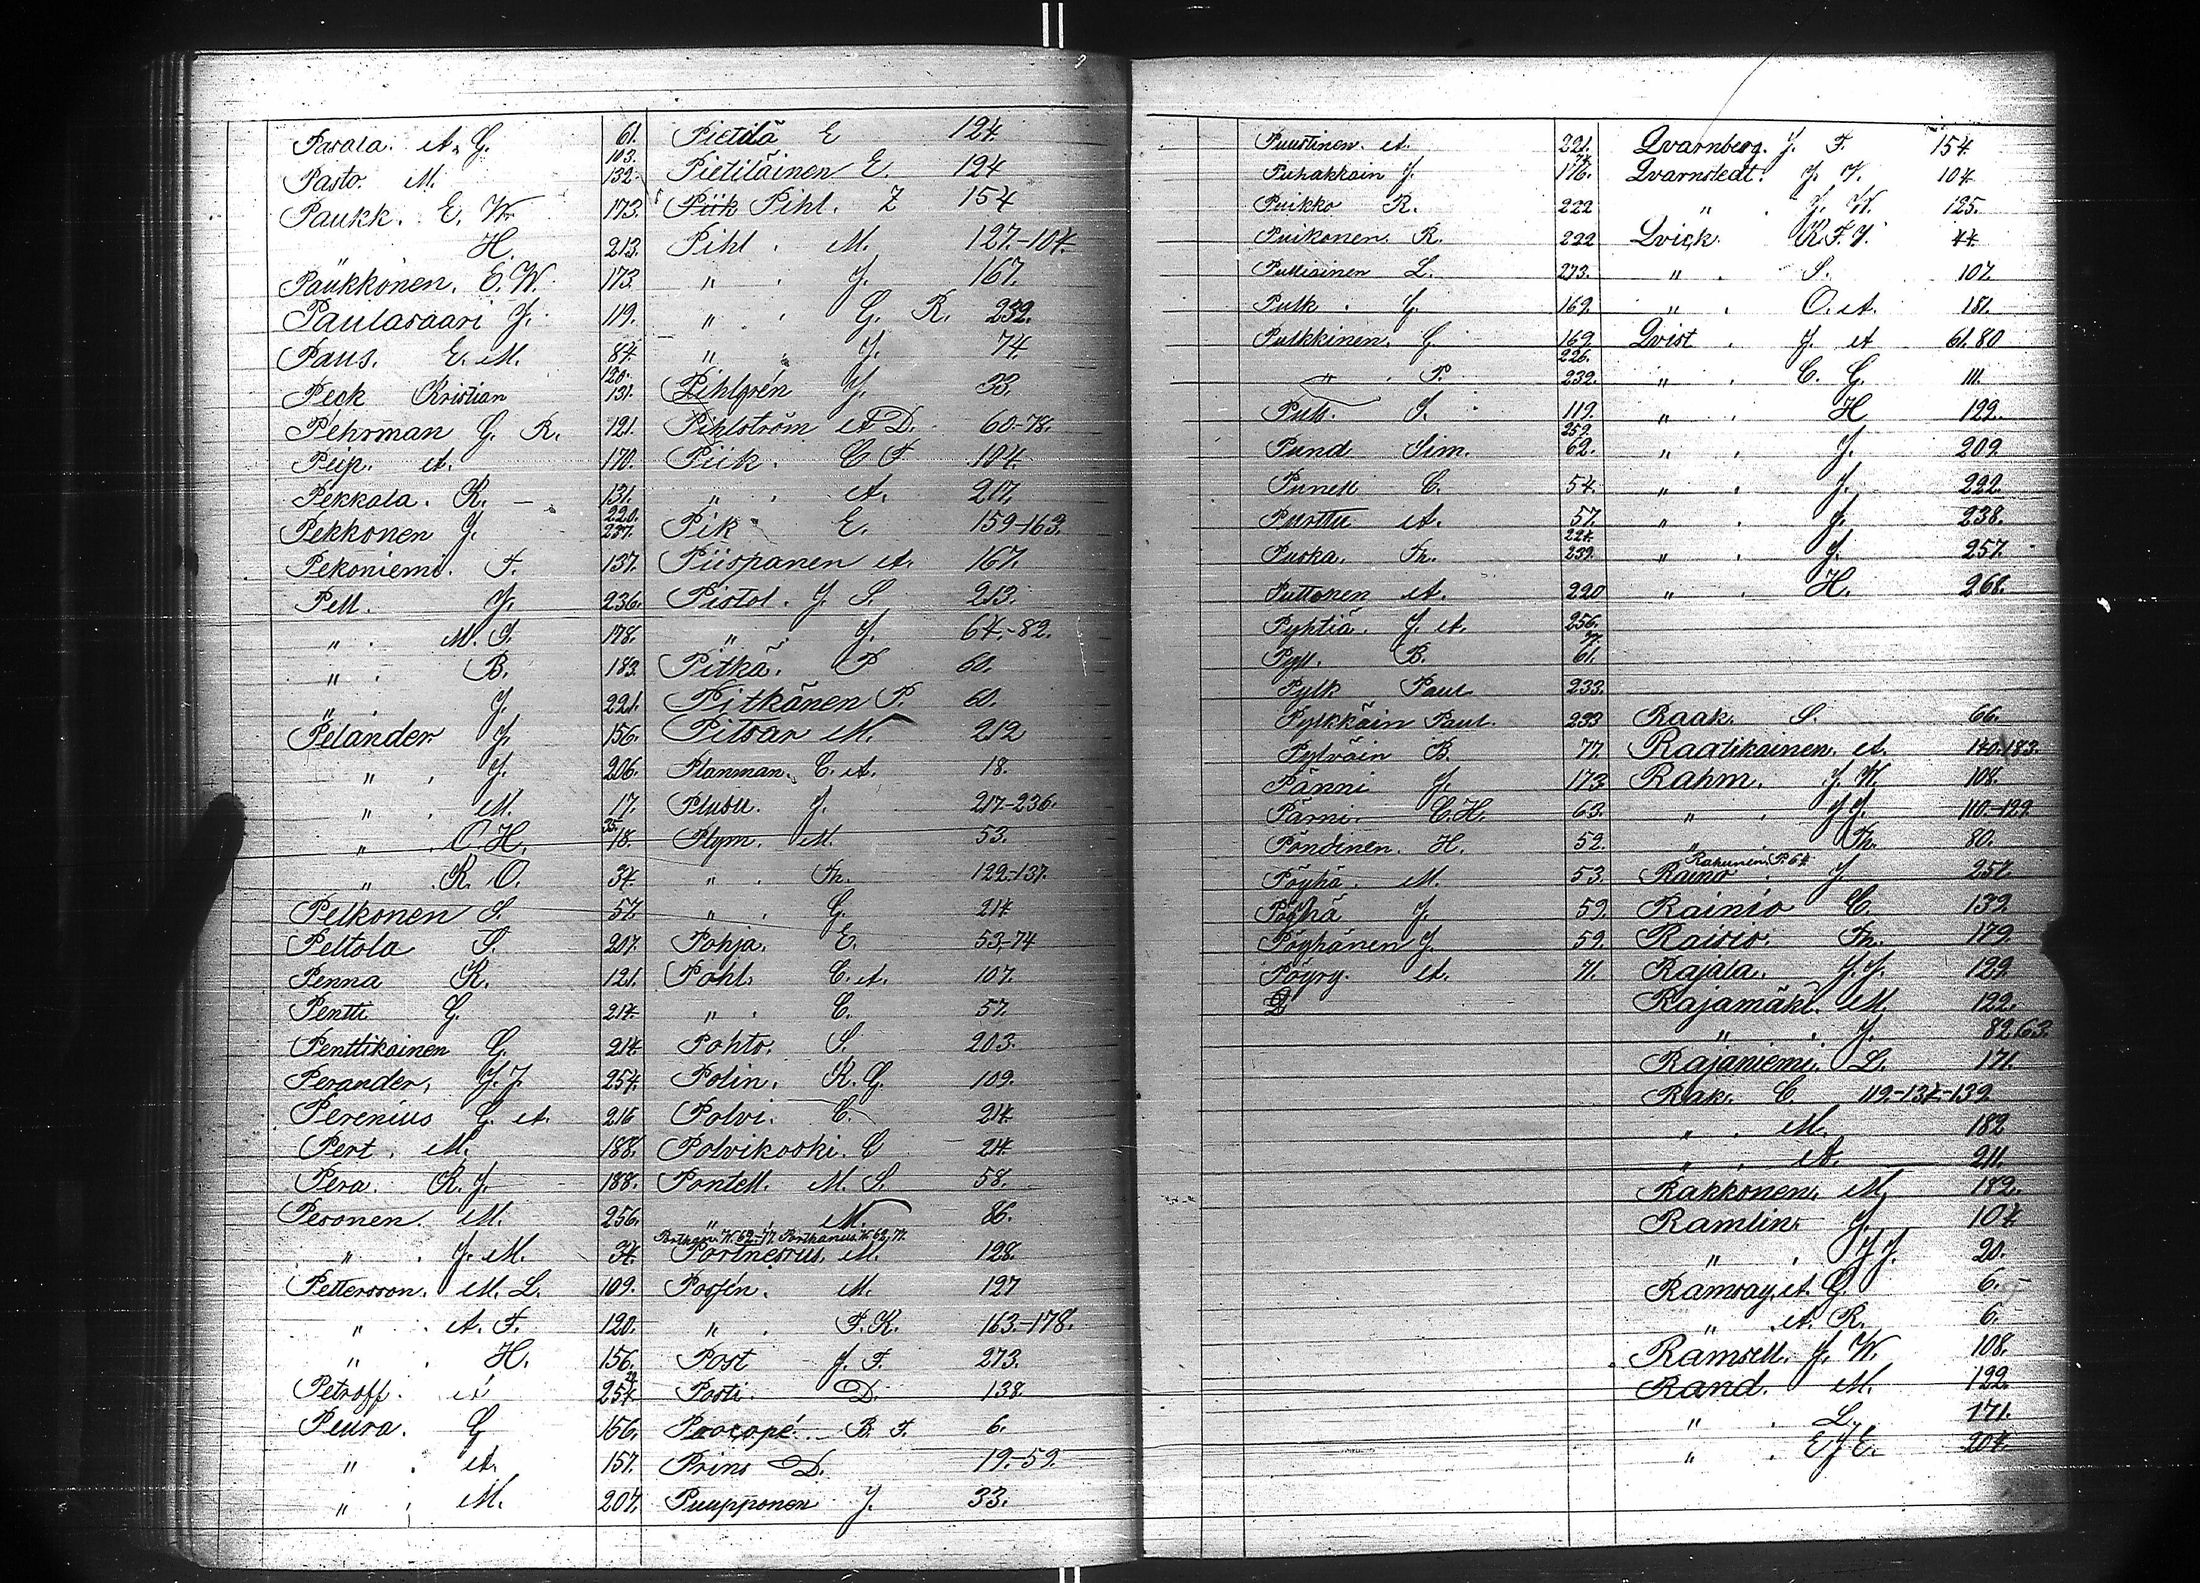 Pasala. A. G. 61.
Pasto. M. 103. 132.
Paukk. E. W. 173.
H. 213.
Paukkonen. E. W. 173.
Paulasaari J. 119.
Paus. E. M. 84.
Peck Kristian 120. 131.
Pehrman G. R. 121.
Peip. A. 170.
Pekkala. K. 131.
Pekkonen J. 220. 237.
Pekoniemi. F. 137.
Pell. J. 236.
" . M. S. 178.
" . B. 183.
" . J. 221.
Pelander J. 156.
" . J. 206.
" . M. 17.
" . C H. 35. 18.
" . K. O. 34.
Pelkonen S. 57.
Peltola S. 207.
Penna K. 121.
Pentti G. 214.
Penttikainen G. 214.
Perander, J. J. 254.
Perenius G. A. 216
Pert. M. 188.
Pera. K. J. 188.
Pesonen. M. 256.
" . J. M. 34.
Pettersson. M. L. 109.
" . A. F. 120.
" . H. 156.
Petroff. A 254.
Peura. G 156.
" . A. 157.
" . M. 207.
Pietilä E 124.
Pietiläinen E. 124
Piik Pihl. Z 154
Pihl. M. 127.-104.
" . J. 167.
" . G. R. 232.
" . J. 74.
Pihlgrén J. 33.
Pihlström A D. 60-78.
Piik. C F. 104.
" . A. 217.
Pik E. 159-163.
Piispanen A. 167.
Pistol. J. S. 213.
" . J. 64.-82.
Pitkä. P 60.
Pitkänen P. 60.
Pitsar M. 212
Planman. C. A. 18.
Plusu. J. 217-236.
Plym. M. 53.
" . Th. 122-137.
" . G. 214
Pohja. E. 53-74
Pohl. C. A. 107.
" . C. 57.
Pohto. S. 203.
Polin. K. G. 109.
Polvi. C. 214
Polvikoski. C 214.
Pontell. M. S. 58.
" M. 86.
Porthan. H. 62-77. Porthanus. H. 62, 77.
Portnesrus. M. 128.
Posfén. M. 127
" . F. K. 163.-178.
Post J. F. 273.
Posti. D. 138
Procopé. B. F. 6.
Prins D. 19.-59.
Puupponen J. 33.
Puustinen. A. 221.
Puhakkain J. 74. 176.
Puikko R. 222
Puikonen. R. 222
Pulliainen L. 273.
Pulk. G. 169.
Pulkkinen. G 169.
" . P. 226. 232.
Pull. S. 119.
Pund Sim. 259. 62.
Punell C. 54.
Purttu A. 57.
Puska. Th. 224. 259.
Puttonen A. 220
Pyhtiä. J. A. 256.
Pyll. B. 77. 61.
Pylk Paul 233.
Pylkkäin Paul. 233
Pylväin B. 77.
Pänni J. 173
Pärni. C. H. 63.
Pöndinen. H. 52.
Pöyhä. M. 53.
Pöyhä J. 59.
Pöyhänen J. 59.
Pöyry. A. 71.
D
Qvarnberg. J. F. 154.
Qvarnstedt. J. F. 104.
" . J. W. 125.
Qvick. K. F. J. 44.
" . S. 107.
" . O. A. 181.
Qvist. J. A 61. 80
" . C. G. 111.
" . H 122.
" . J. 209
" . J. 222
" . J. 238.
" . J. 257.
" . H. 268.
Raak. S. 66.
Raatikainen. A. 140.183.
Rahm. J. W. 108.
" . J J. 110.-124.
" . Th. 80.
Rahunen. P. 64.
Raino. J. 257
Rainio C. 139.
Raisio. Th. 179.
Rajala. J. J. 129.
Rajamäki. M. 122.
" . J. 82 63.
Rajaniemi. L. 171.
Rak. C 119.-134.-139
" . M. 182
" . A. 211.
Rakkonen. M. 182.
Ramlin. J. 104
" . J J. 20.
Ramsay. A. G. 6.
" . A. R. 6.
Ramsell. J. W. 108.
Rand. M. 122.
" . L. 171.
" . E J E. 204.